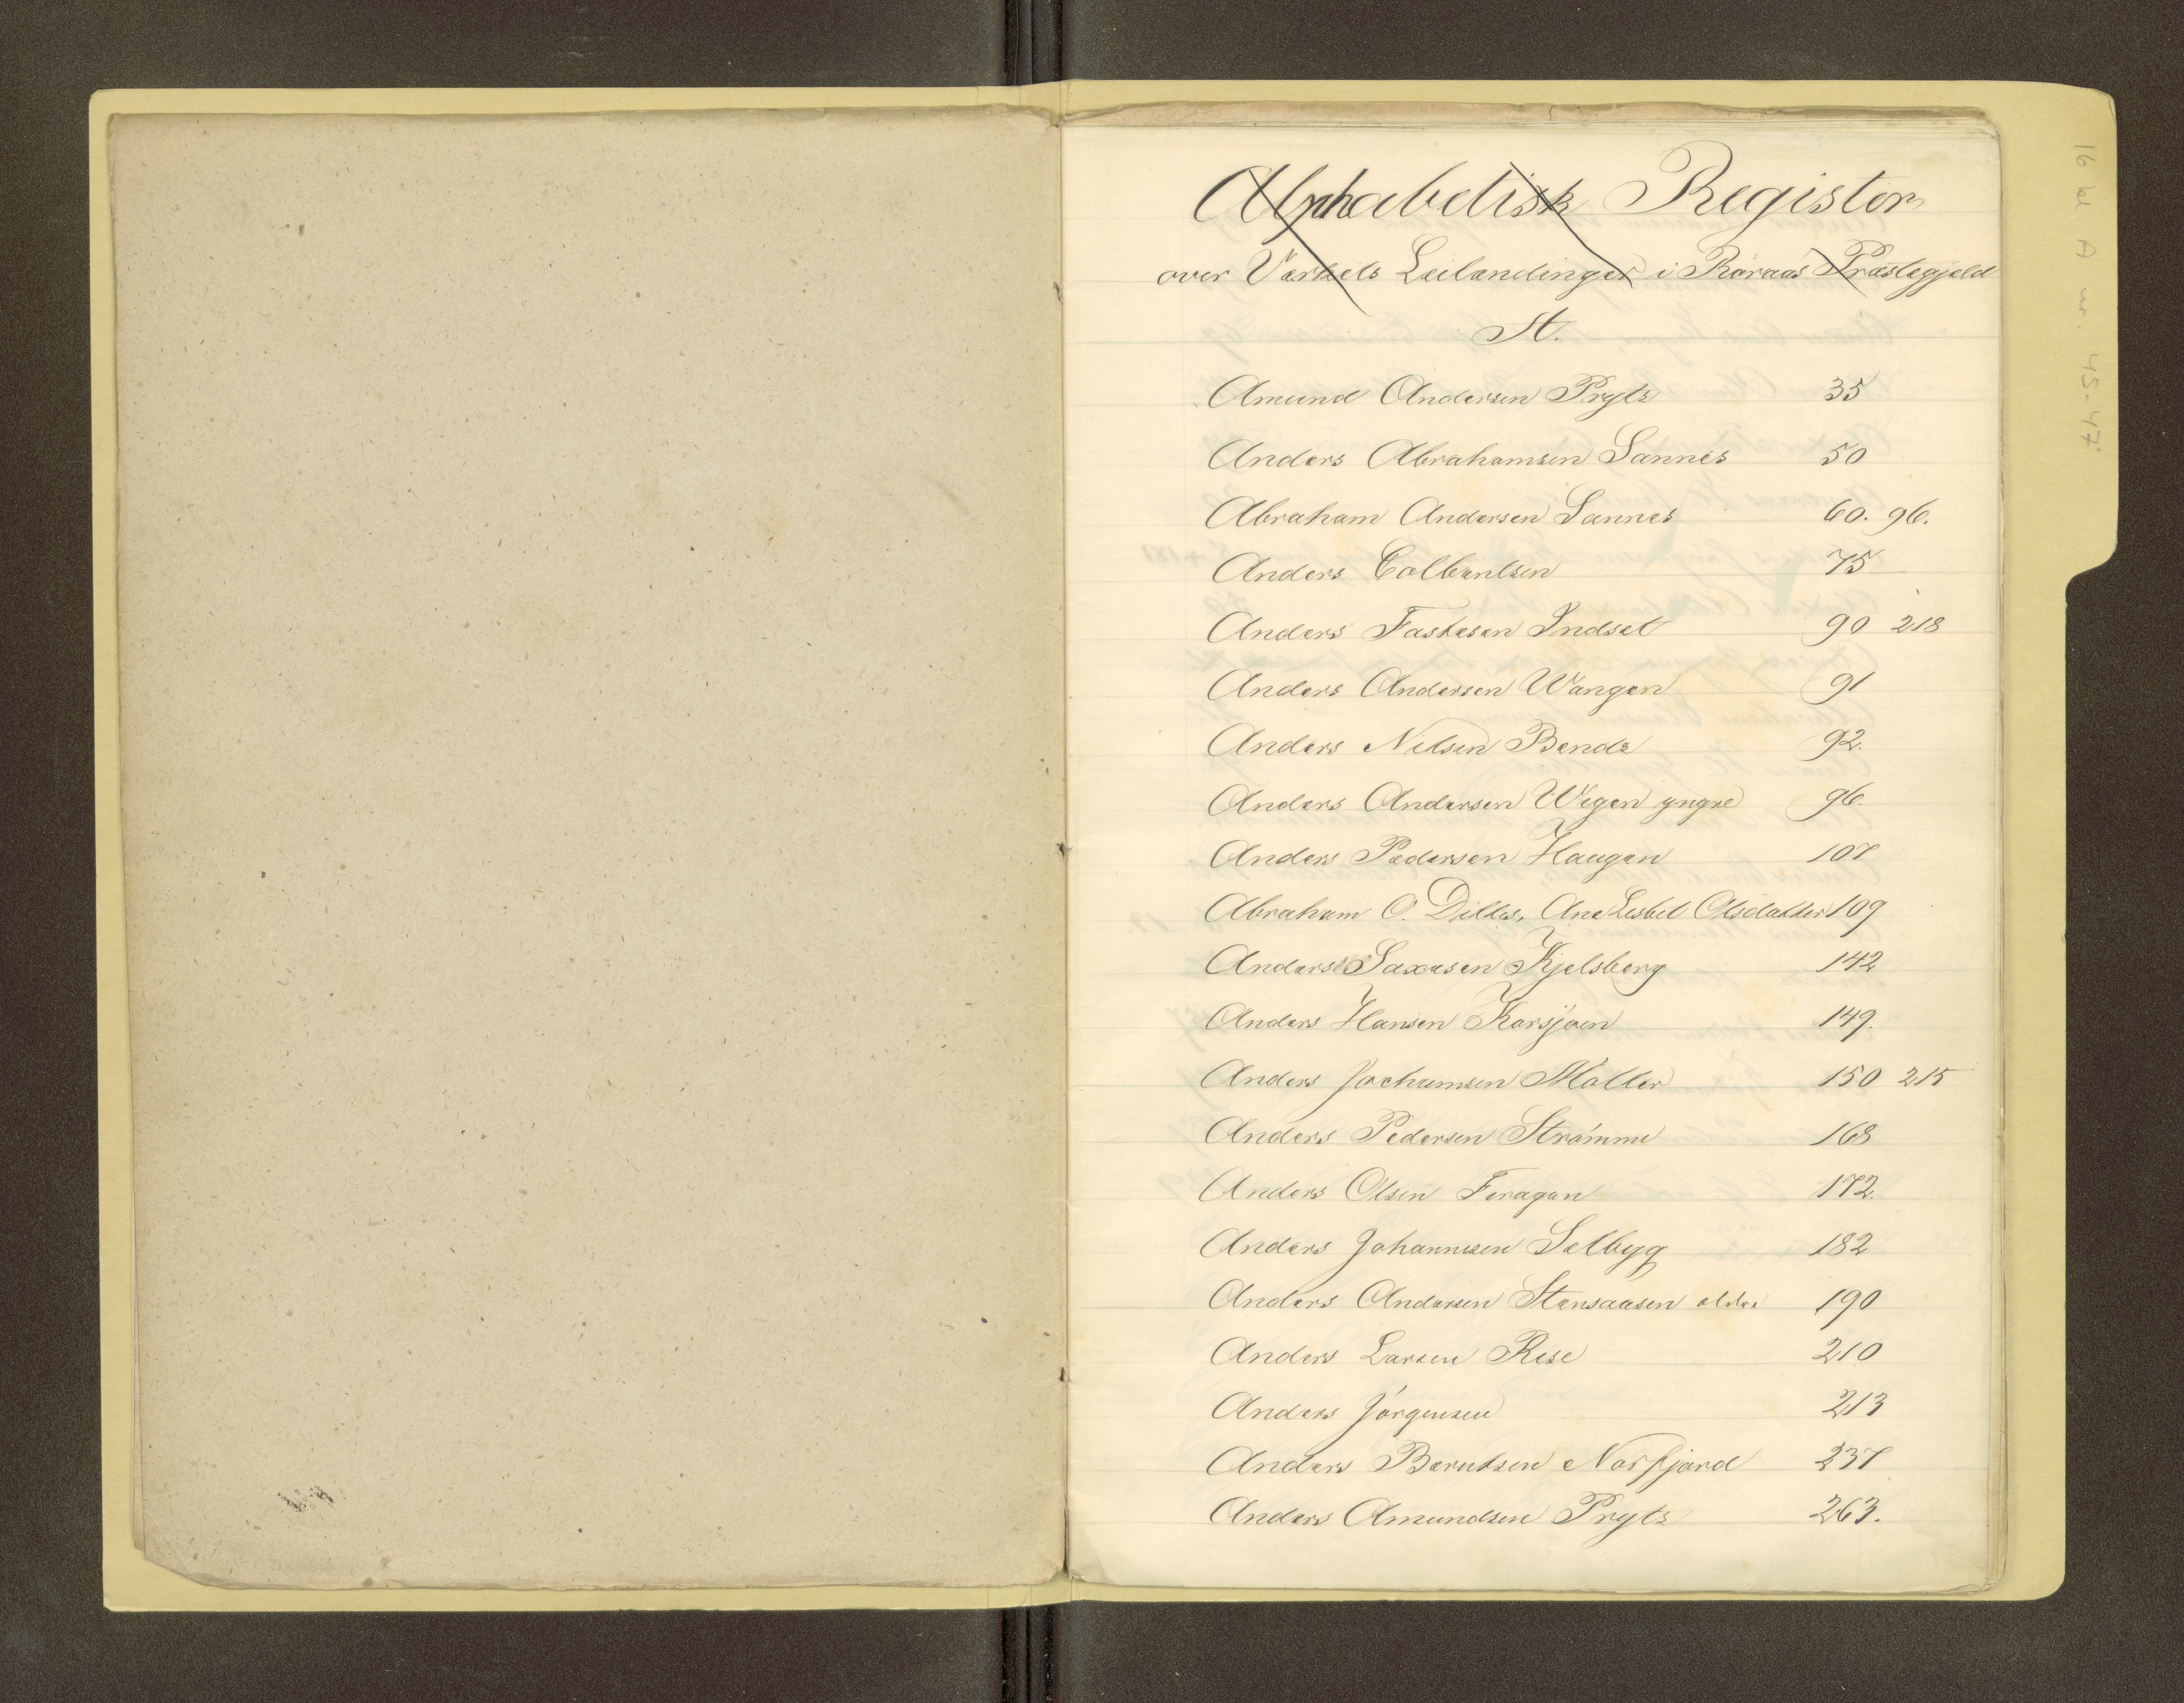 Alphabetisk Register
over Værkets Leilændinger i Røraas Præstegjeld
A.
Amund Andersen Prytz 35
Anders Abrahamsen Sannes 50
Abraham Andersen Sannes 60. 96.
Anders Colbentsen 75
Anders Fastesen Indset 90 218
Anders Andersen Wangen 91
Anders Nilsen Bendz 92.
Anders Andersen Wegen yngre 96.
Anders Pedersen Haugen 107
Abraham O. Dilles, Ane Lisbet Olsdatter 109
Anders Saxesen Kjelsberg 142
Anders Hansen Korsjøen 149.
Anders Jochumsen Møller 150 215
Anders Pedersen Strømme 168
Anders Olsen Feragen 172.
Anders Johannesen Selbyg 182
Anders Andersen Stensaasen ældre 190
Anders Larsen Rise 210
Anders Jørgensen 213
Anders Berntsen Norfjord 237
Anders Amundsen Prytz 263.
16 bl A nr. 45-47